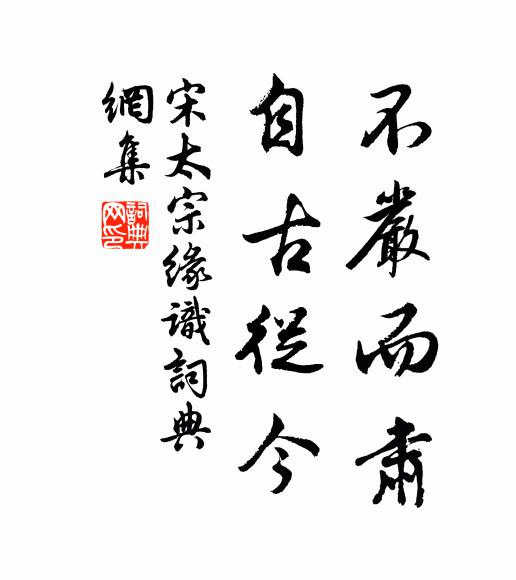 不嚴而肅
自古從今
宋太宗緣識詞典
網集
詞典
网印